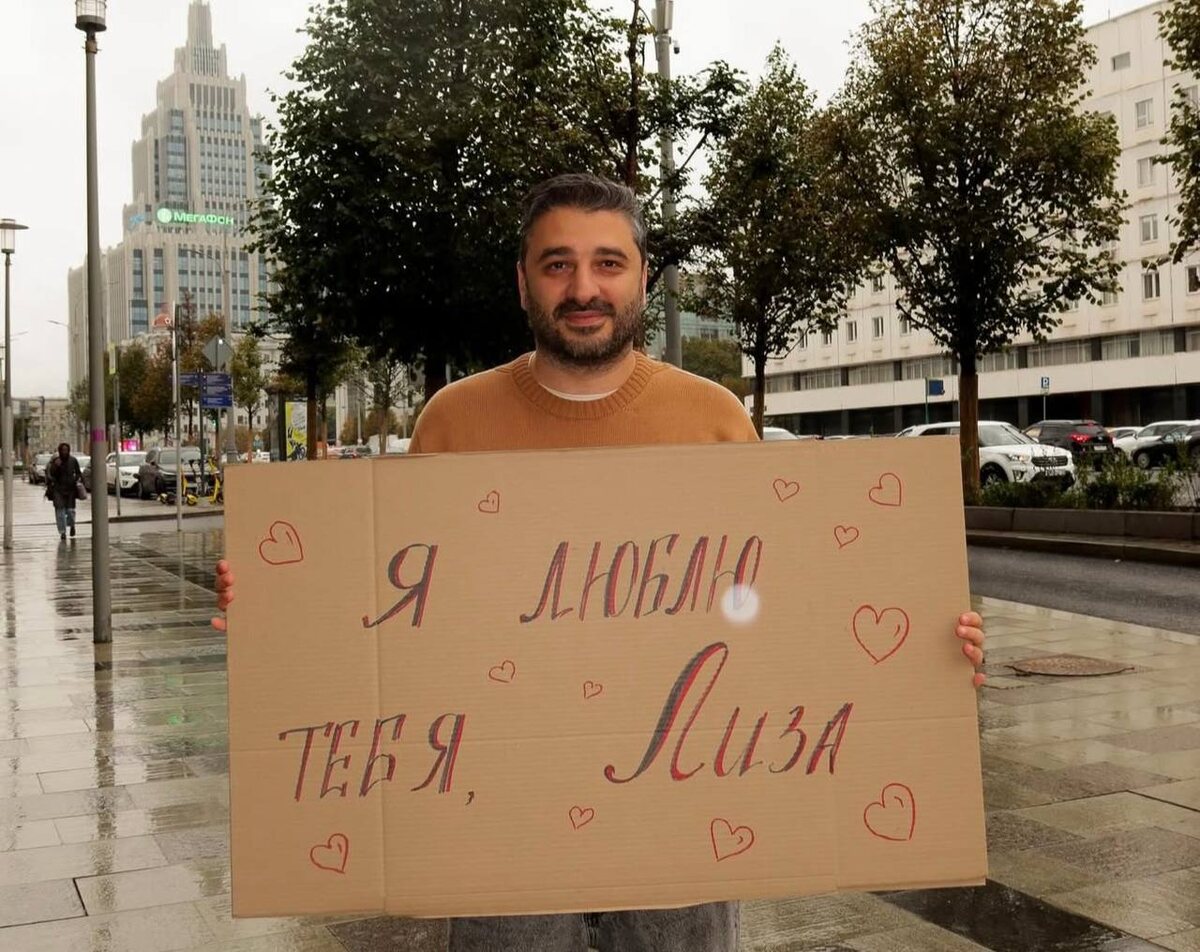 МЕГАФОН
Я ЛЮБЛЮ
ТЕБЯ, Лиза